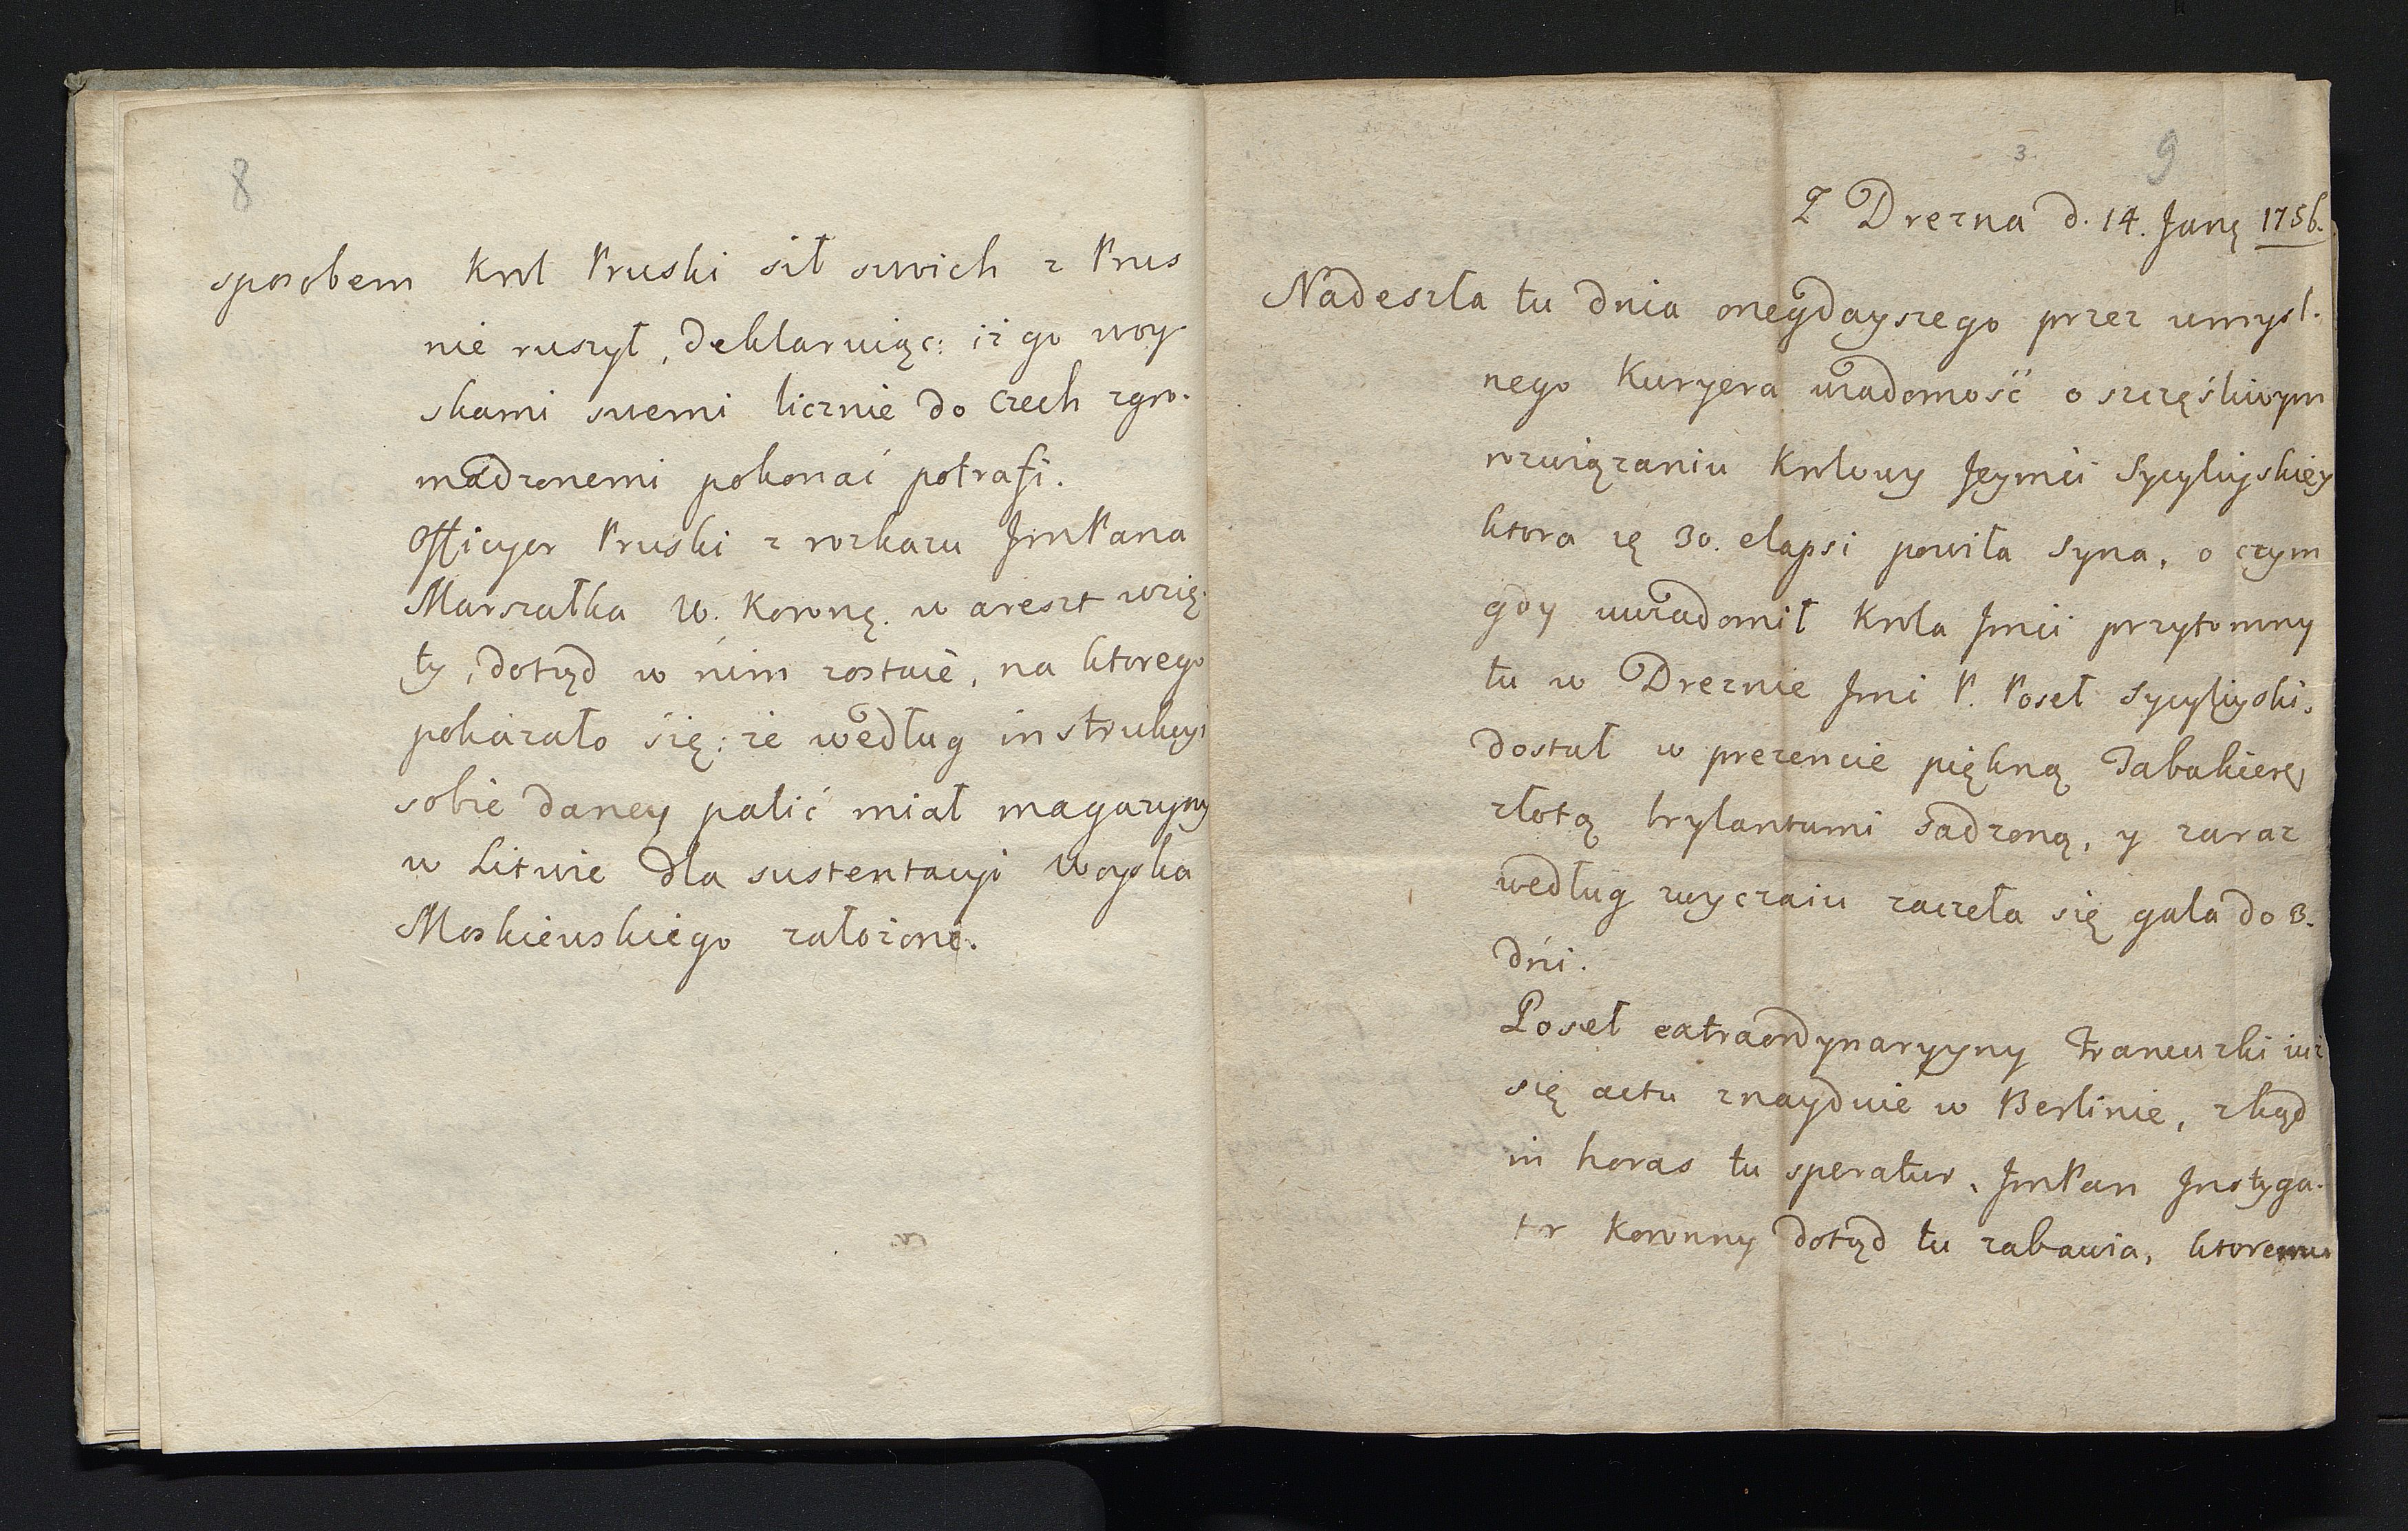 8
sposobem Krol Pruski sił swoich z Prus
nie ruszył, deklaruiąc: iż go woy-
skami swemi licznie do Czech zgro-
madzonemi pokonać potrafi.
Officyer Pruski z rozkazu JmPana
Marszałka W. Koronę. w areszt wzię-
ty, dotąd w nim zostaie, na ktorego
pokazało się: że według instrukcyi
sobie daney palić miał magazyny
w Litwie dla sustentacyi Woyska
Moskiewskiego założone.
3.
9
Z Drezna d. 14. Janę 1756.
Nadeszła tu dnia onegdayszego przez umysl-
nego Kuryera wiadomość o szczęśliwym
rozwiązaniu Krolowy Jeymci Sycylijskiey
ktora zę 30. elapsi powiła Syna, o czym
gdy uwiadomił Krola Jmci przytomny
tu w Dreznie Jmi P. Poseł Sycyliyski,
dostał w prezencie piękną Tabakierę
złotą brylantami sadzoną, y zaraz
według zwyczaiu zaczeła się gala do 3.
dni.
Poseł extraordynaryyny Francuzki iuż
się actu znayduie w Berlinie, zkąd
in horas tu speratur, JmPan Instyga-
tor Koronny dotąd tu zabawia, ktoremu